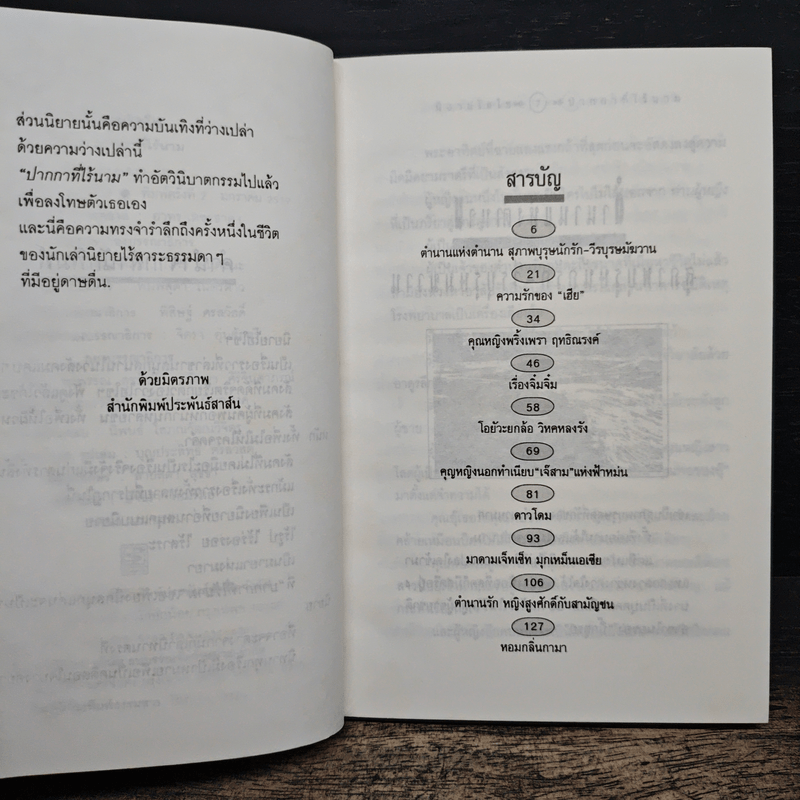 ส่วนนิยายนั้นคือความบันเทิงที่ว่างเปล่า
ด้วยความว่างเปล่านี้
"ปากกาที่ไร้นาม" ทำอัตวินิบาตกรรมไปแล้ว
เพื่อลงโทษตัวเธอเอง
และนี่คือความทรงจำรำลึกถึงครั้งหนึ่งในชีวิต
ของนักเล่านิยายไร้สาระธรรมดาๆ
ที่มีอยู่ดาษดื่น.
ด้วยมิตรภาพ
สำนักพิมพ์ประพันธ์สาส์น
สารบัญ
6
ตำนานแห่งตำนาน สุภาพบุรุษนักรัก-วีรบุรุษมัฆวาน
21
ความรักของ "เฮีย"
34
คุณหญิงพริ้งเพรา ฤทธิณรงค์
46
เรื่องจิ๋มจิ๋ม
58
โอยัวะยกล้อ วิหคหลงรัง
69
คุญหญิงนอกทำเนียบ"เจ๊สาม"แห่งฟ้าหม่น
81
ดาวโดม
93
มาดามเจ็ทเซ็ท มุกเหม็นเอเซีย
106
ตำนานรัก หญิงสูงศักดิ์กับสามัญชน
127
หอมกลิ่นกามา